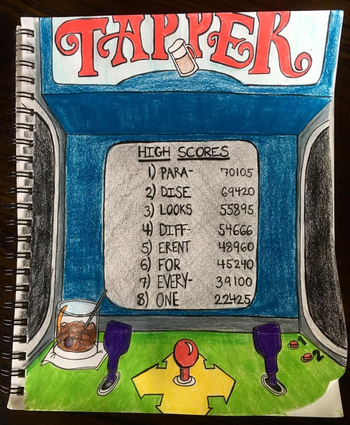 TAPPER
HIGH SCORES
1) PARA- 70105
2) DISE 69420
3) LOOKS 55895
4) DIFF- 54666
5) ERENT 48960
6) FOR 45240
7) EVERY- 39100
8) ONE 22425
1
2